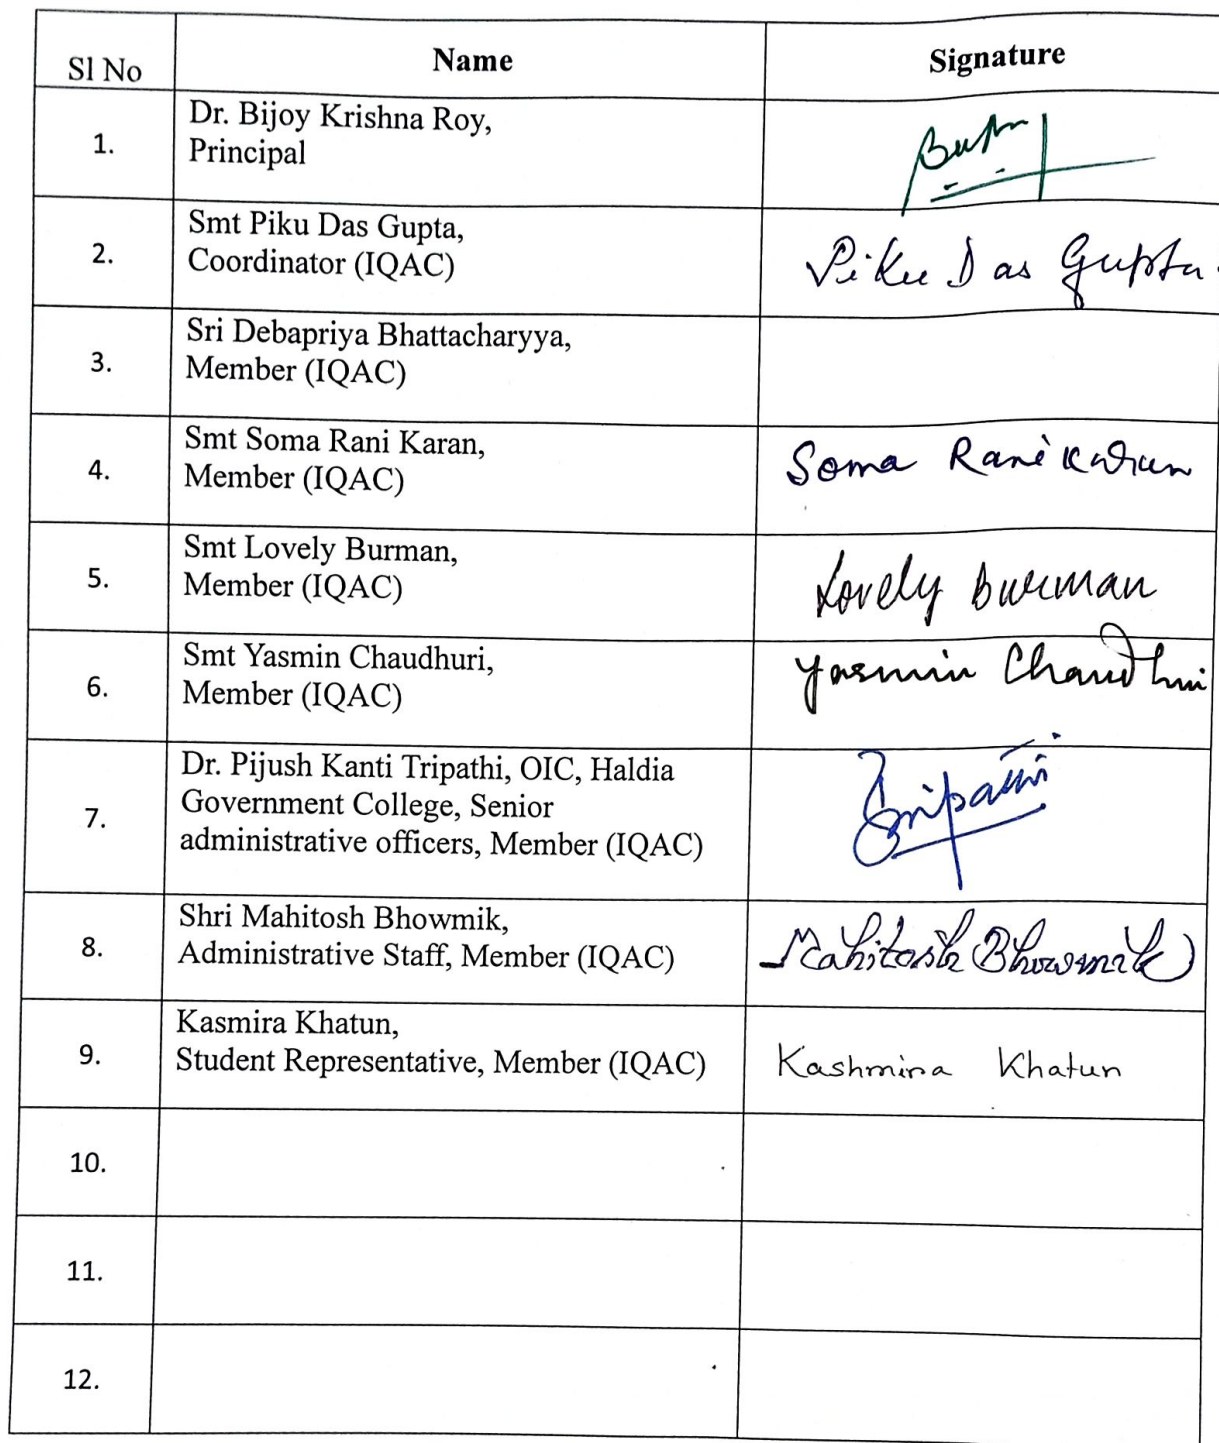 Sl No Name Signature
1. Dr. Bijoy Krishna Roy,
Principal
2. Smt Piku Das Gupta,
Coordinator (IQAC) Piku Das Gupta
3. Sri Debapriya Bhattacharyya,
Member (IQAC)
4. Smt Soma Rani Karan,
Member (IQAC) Soma Rani Karan
5. Smt Lovely Burman,
Member (IQAC) Lovely Burman
6. Smt Yasmin Chaudhuri,
Member (IQAC) Yasmin Chaudhuri
7. Dr. Pijush Kanti Tripathi, OIC, Haldia
Government College, Senior
administrative officers, Member (IQAC) Tripathi
8. Shri Mahitosh Bhowmik,
Administrative Staff, Member (IQAC) Mahitosh Bhowmik
9. Kasmira Khatun,
Student Representative, Member (IQAC) Kashmira Khatun
10.
11.
12.